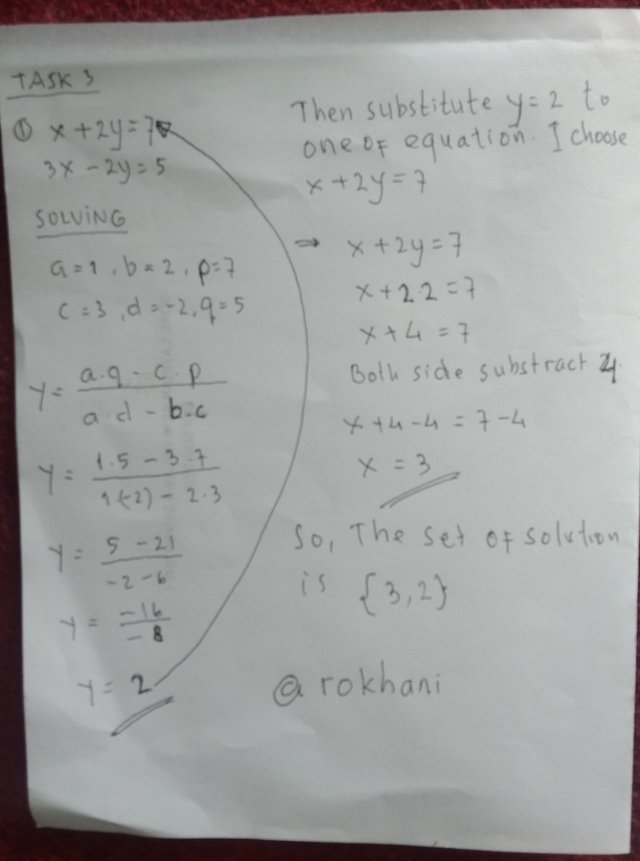 TASK 3
① x + 2y = 7
3x - 2y = 5
SOLVING
a = 1, b = 2, p = 7
c = 3, d = -2, q = 5
y = a.q - c.p / a.d - b.c
y = 1.5 - 3.7 / 1(-2) - 2.3
y = 5 - 21 / -2 - 6
y = -16 / -8
y = 2
Then substitute y = 2 to
one of equation. I choose
x + 2y = 7
⇒ x + 2y = 7
x + 2 2 = 7
x + 4 = 7
Both side substract 4
x + 4 - 4 = 7 - 4
x = 3
So, The set of solution
is {3,2}
@ rokhani